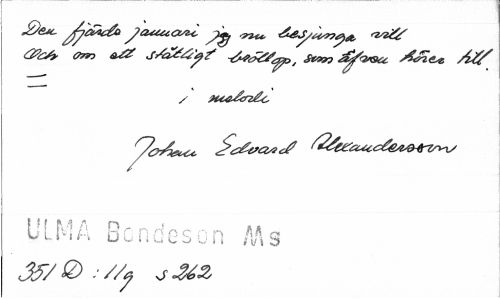 Den fjärde januari jag nu besjunga vill
Och om ett ståtligt bröllop, som äfven hörer till.
i melodi
Johan Edvard Alexandersson
ULMA Bondeson Ms
351 D : 11q s 262